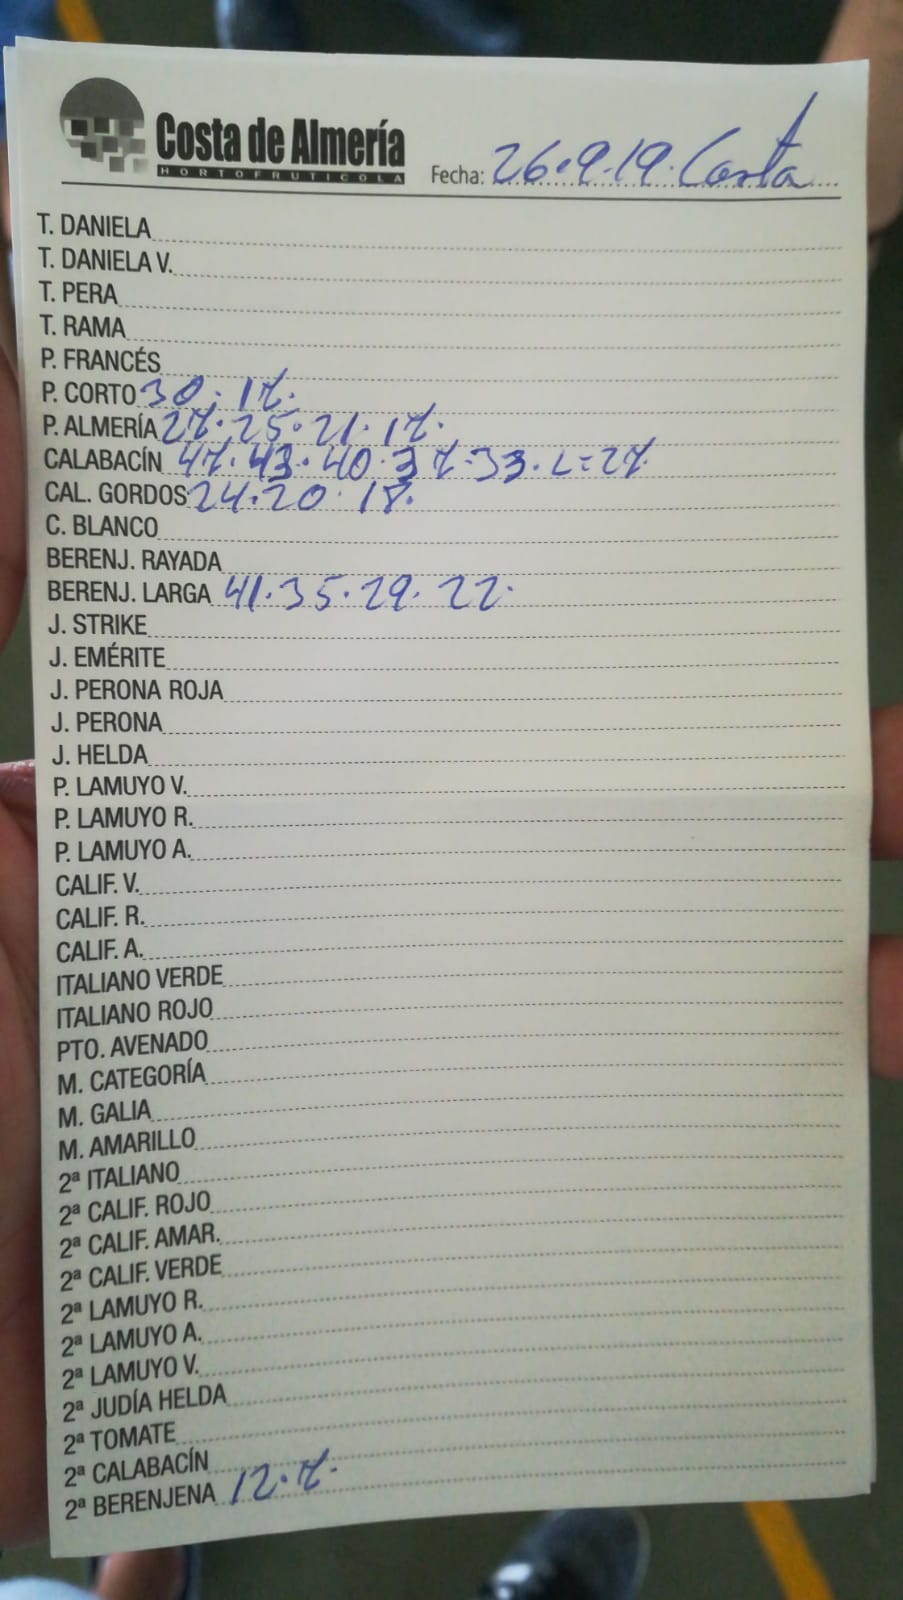 Costa de Almería
HORTOFRUTICOLA
Fecha: 26.9.19. Costa
T. DANIELA
T. DANIELA V.
T. PERA
T. RAMA
P. FRANCÉS
P. CORTO 30. 17.
P. ALMERÍA 27. 25. 21. 17.
CALABACÍN 47. 43. 40. 37. 33. L=27.
CAL. GORDOS 24. 20. 18.
C. BLANCO
BERENJ. RAYADA
BERENJ. LARGA 41. 35. 29. 22.
J. STRIKE
J. EMÉRITE
J. PERONA ROJA
J. PERONA
J. HELDA
P. LAMUYO V.
P. LAMUYO R.
P. LAMUYO A.
CALIF. V.
CALIF. R.
CALIF. A.
ITALIANO VERDE
ITALIANO ROJO
PTO. AVENADO
M. CATEGORÍA
M. GALIA
M. AMARILLO
2ª ITALIANO
2ª CALIF. ROJO
2ª CALIF. AMAR.
2ª CALIF. VERDE
2ª LAMUYO R.
2ª LAMUYO A.
2ª LAMUYO V.
2ª JUDÍA HELDA
2ª TOMATE
2ª CALABACÍN
2ª BERENJENA 12. 7.